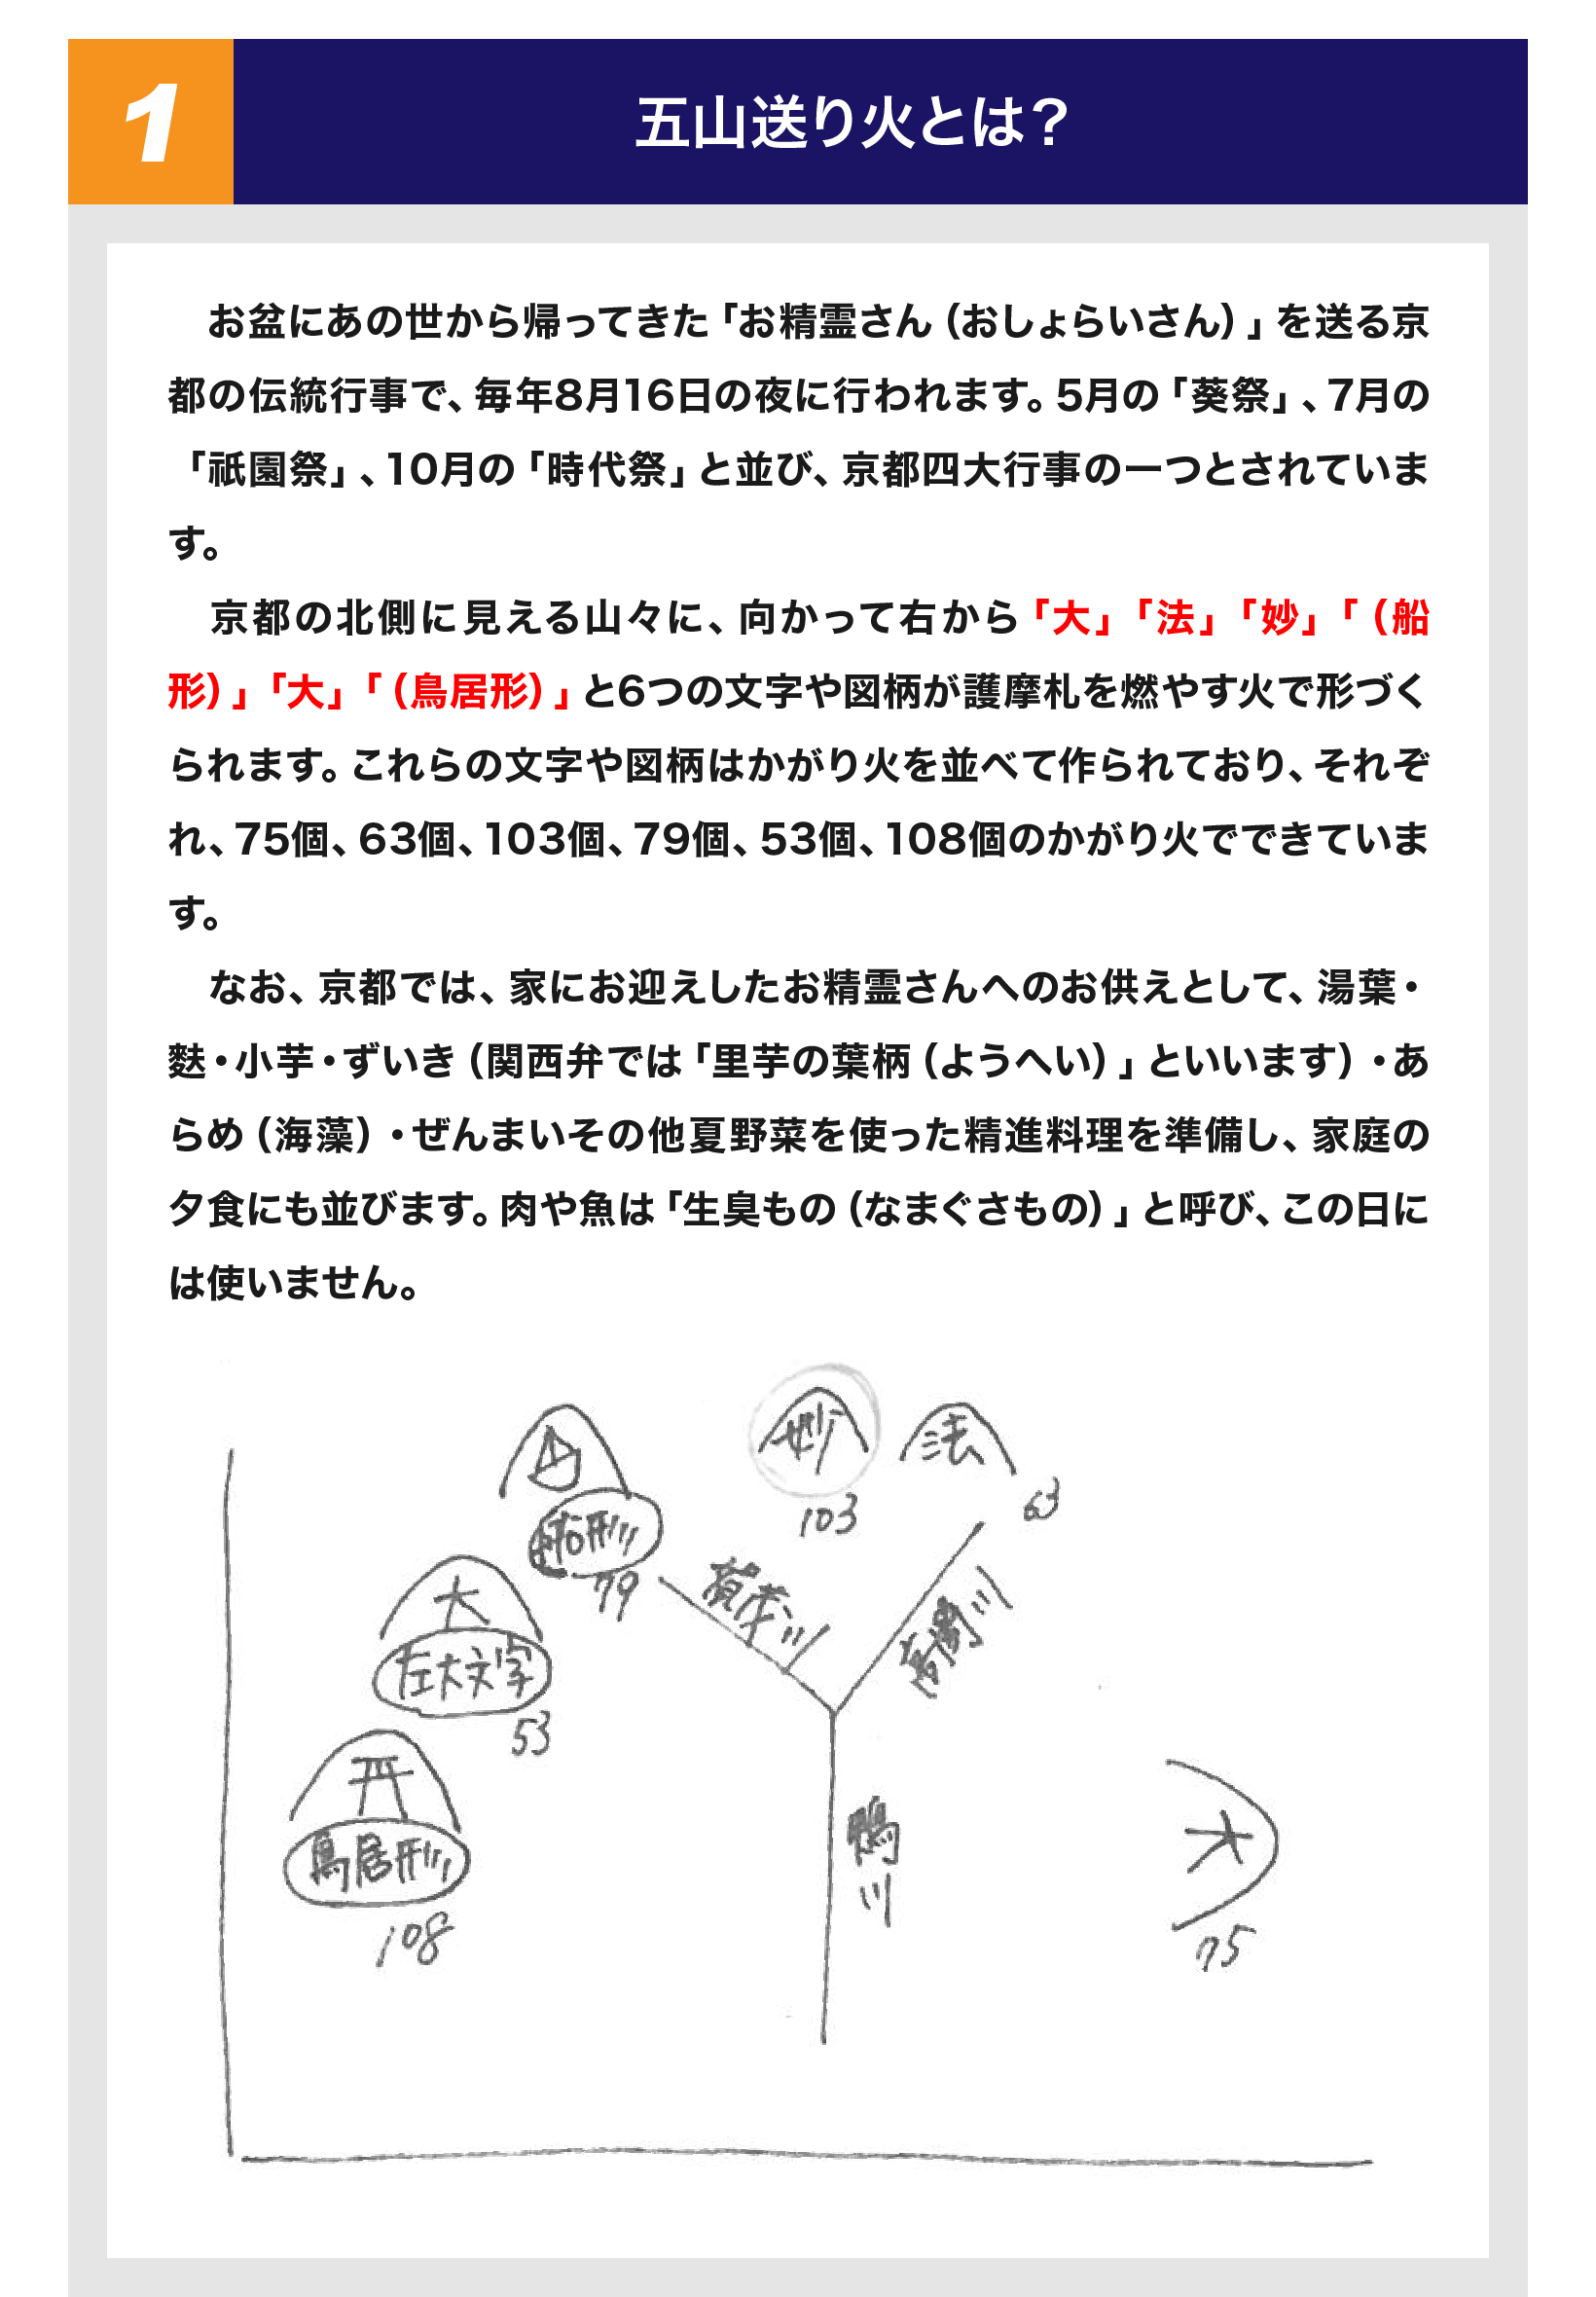 1
五山送り火とは？
お盆にあの世から帰ってきた「お精霊さん（おしょらいさん）」を送る京
都の伝統行事で、毎年8月16日の夜に行われます。5月の「葵祭」、7月の
「祇園祭」、10月の「時代祭」と並び、京都四大行事の一つとされていま
す。
京都の北側に見える山々に、向かって右から「大」「法」「妙」「（船
形）」「大」「（鳥居形）」と6つの文字や図柄が護摩札を燃やす火で形づく
られます。これらの文字や図柄はかがり火を並べて作られており、それぞ
れ、75個、63個、103個、79個、53個、108個のかがり火でできていま
す。
なお、京都では、家にお迎えしたお精霊さんへのお供えとして、湯葉・
麩・小芋・ずいき（関西弁では「里芋の葉柄（ようへい）」といいます）・あ
らめ（海藻）・ぜんまいその他夏野菜を使った精進料理を準備し、家庭の
夕食にも並びます。肉や魚は「生臭もの（なまぐさもの）」と呼び、この日に
は使いません。
妙
法
103
63
船形
79
賀茂川
高野川
大
左大文字
53
鳥居形
108
鴨川
大
75